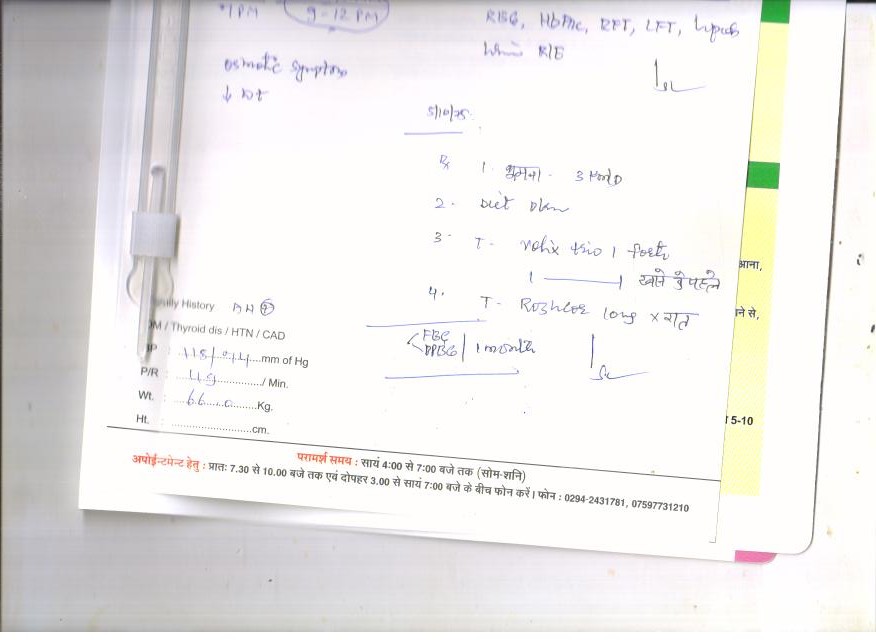 9-12 PM
RBG, HbA1c, RFT, LFT, Lipids
R/E
osmotic symptoms
↓ wt
5/10/25
Rx 1. घूमना - 3
2. Diet plan
3. T- trio 1 forte
1 —— 1 खाने से पहले
आना,
4. T- long x रात
ने से,
Family History
DM / Thyroid dis / HTN / CAD
FBG
PPBG | 1 month
BP mm of Hg
P/R / Min.
Wt. 66 Kg.
Ht. cm.
5-10
परामर्श समय : सायं 4:00 से 7:00 बजे तक (सोम-शनि)
अपोईन्टमेन्ट हेतु : प्रातः 7.30 से 10.00 बजे तक एवं दोपहर 3.00 से सायं 7:00 बजे के बीच फोन करें। फोन : 0294-2431781, 07597731210